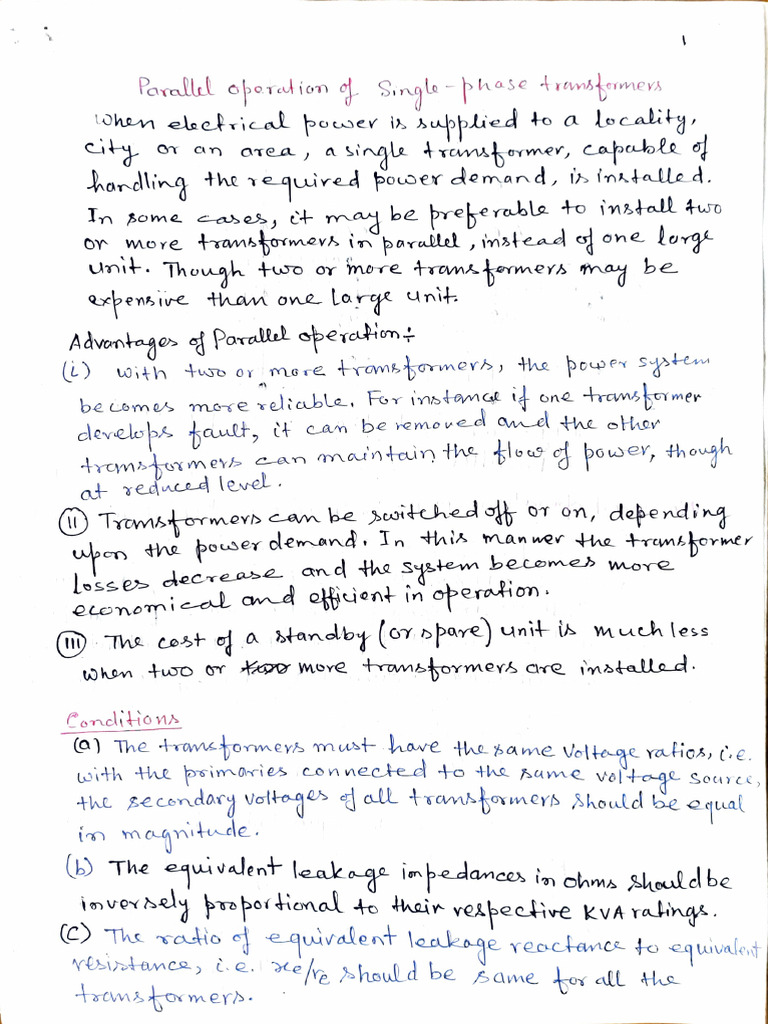 1
Parallel operation of Single-phase transformers
When electrical power is supplied to a locality,
city or an area, a single transformer, capable of
handling the required power demand, is installed.
In some cases, it may be preferable to install two
or more transformers in parallel, instead of one large
unit. Though two or more transformers may be
expensive than one large unit.
Advantages of Parallel operation:-
(i) with two or more transformers, the power system
becomes more reliable. For instance if one transformer
develops fault, it can be removed and the other
transformers can maintain the flow of power, though
at reduced level.
(II) Transformers can be switched off or on, depending
upon the power demand. In this manner the transformer
losses decrease and the system becomes more
economical and efficient in operation.
(III) The cost of a standby (or spare) unit is much less
when two or two more transformers are installed.
Conditions
(a) The transformers must have the same voltage ratios, i.e.
with the primaries connected to the same voltage source,
the secondary voltages of all transformers should be equal
in magnitude.
(b) The equivalent leakage impedances in ohms should be
inversely proportional to their respective KVA ratings.
(C) The ratio of equivalent leakage reactance to equivalent
resistance, i.e. xe/re should be same for all the
transformers.